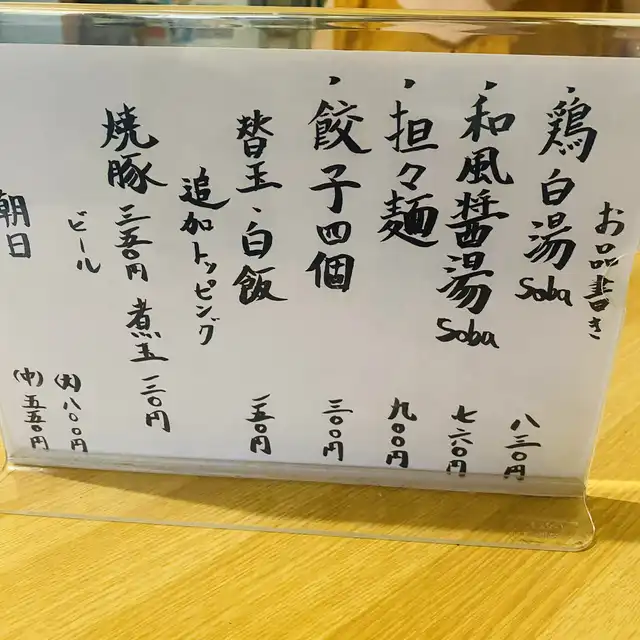 お品書き
・鶏白湯Soba 八三〇円
・和風醤湯Soba 七六〇円
・担々麺 九〇〇円
・餃子四個 三〇〇円
替玉・白飯 一五〇円
追加トッピング
焼豚 三五〇円 煮玉 一三〇円
ビール (大) 八〇〇円
朝日 (中) 五五〇円